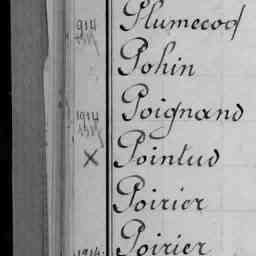 914 Plumecoq
Pohin
1914 Poignand
X Pointud
Poirier
1914. Poirier